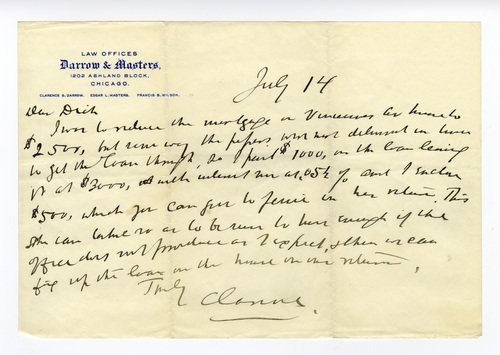 LAW OFFICES
Darrow & Masters,
1202 ASHLAND BLOCK,
CHICAGO.
CLARENCE S. DARROW. EDGAR L. MASTERS. FRANCIS S. WILSON.
July 14
Dear
I to reduce the mortgage on Vincennes Av house to
$2500, but some way the papers were not delivered in time
to get the loan through, so I paid $1000, on the loan leaving
it at $3000, with interest now at .05½ % and I enclose
$500, which you can give to Jessie on her return. This
she can take so as to be sure to have enough if the
office does not produce as I expect, & then we can
fix up the loan on the house on our return.
Truly
Clarence.